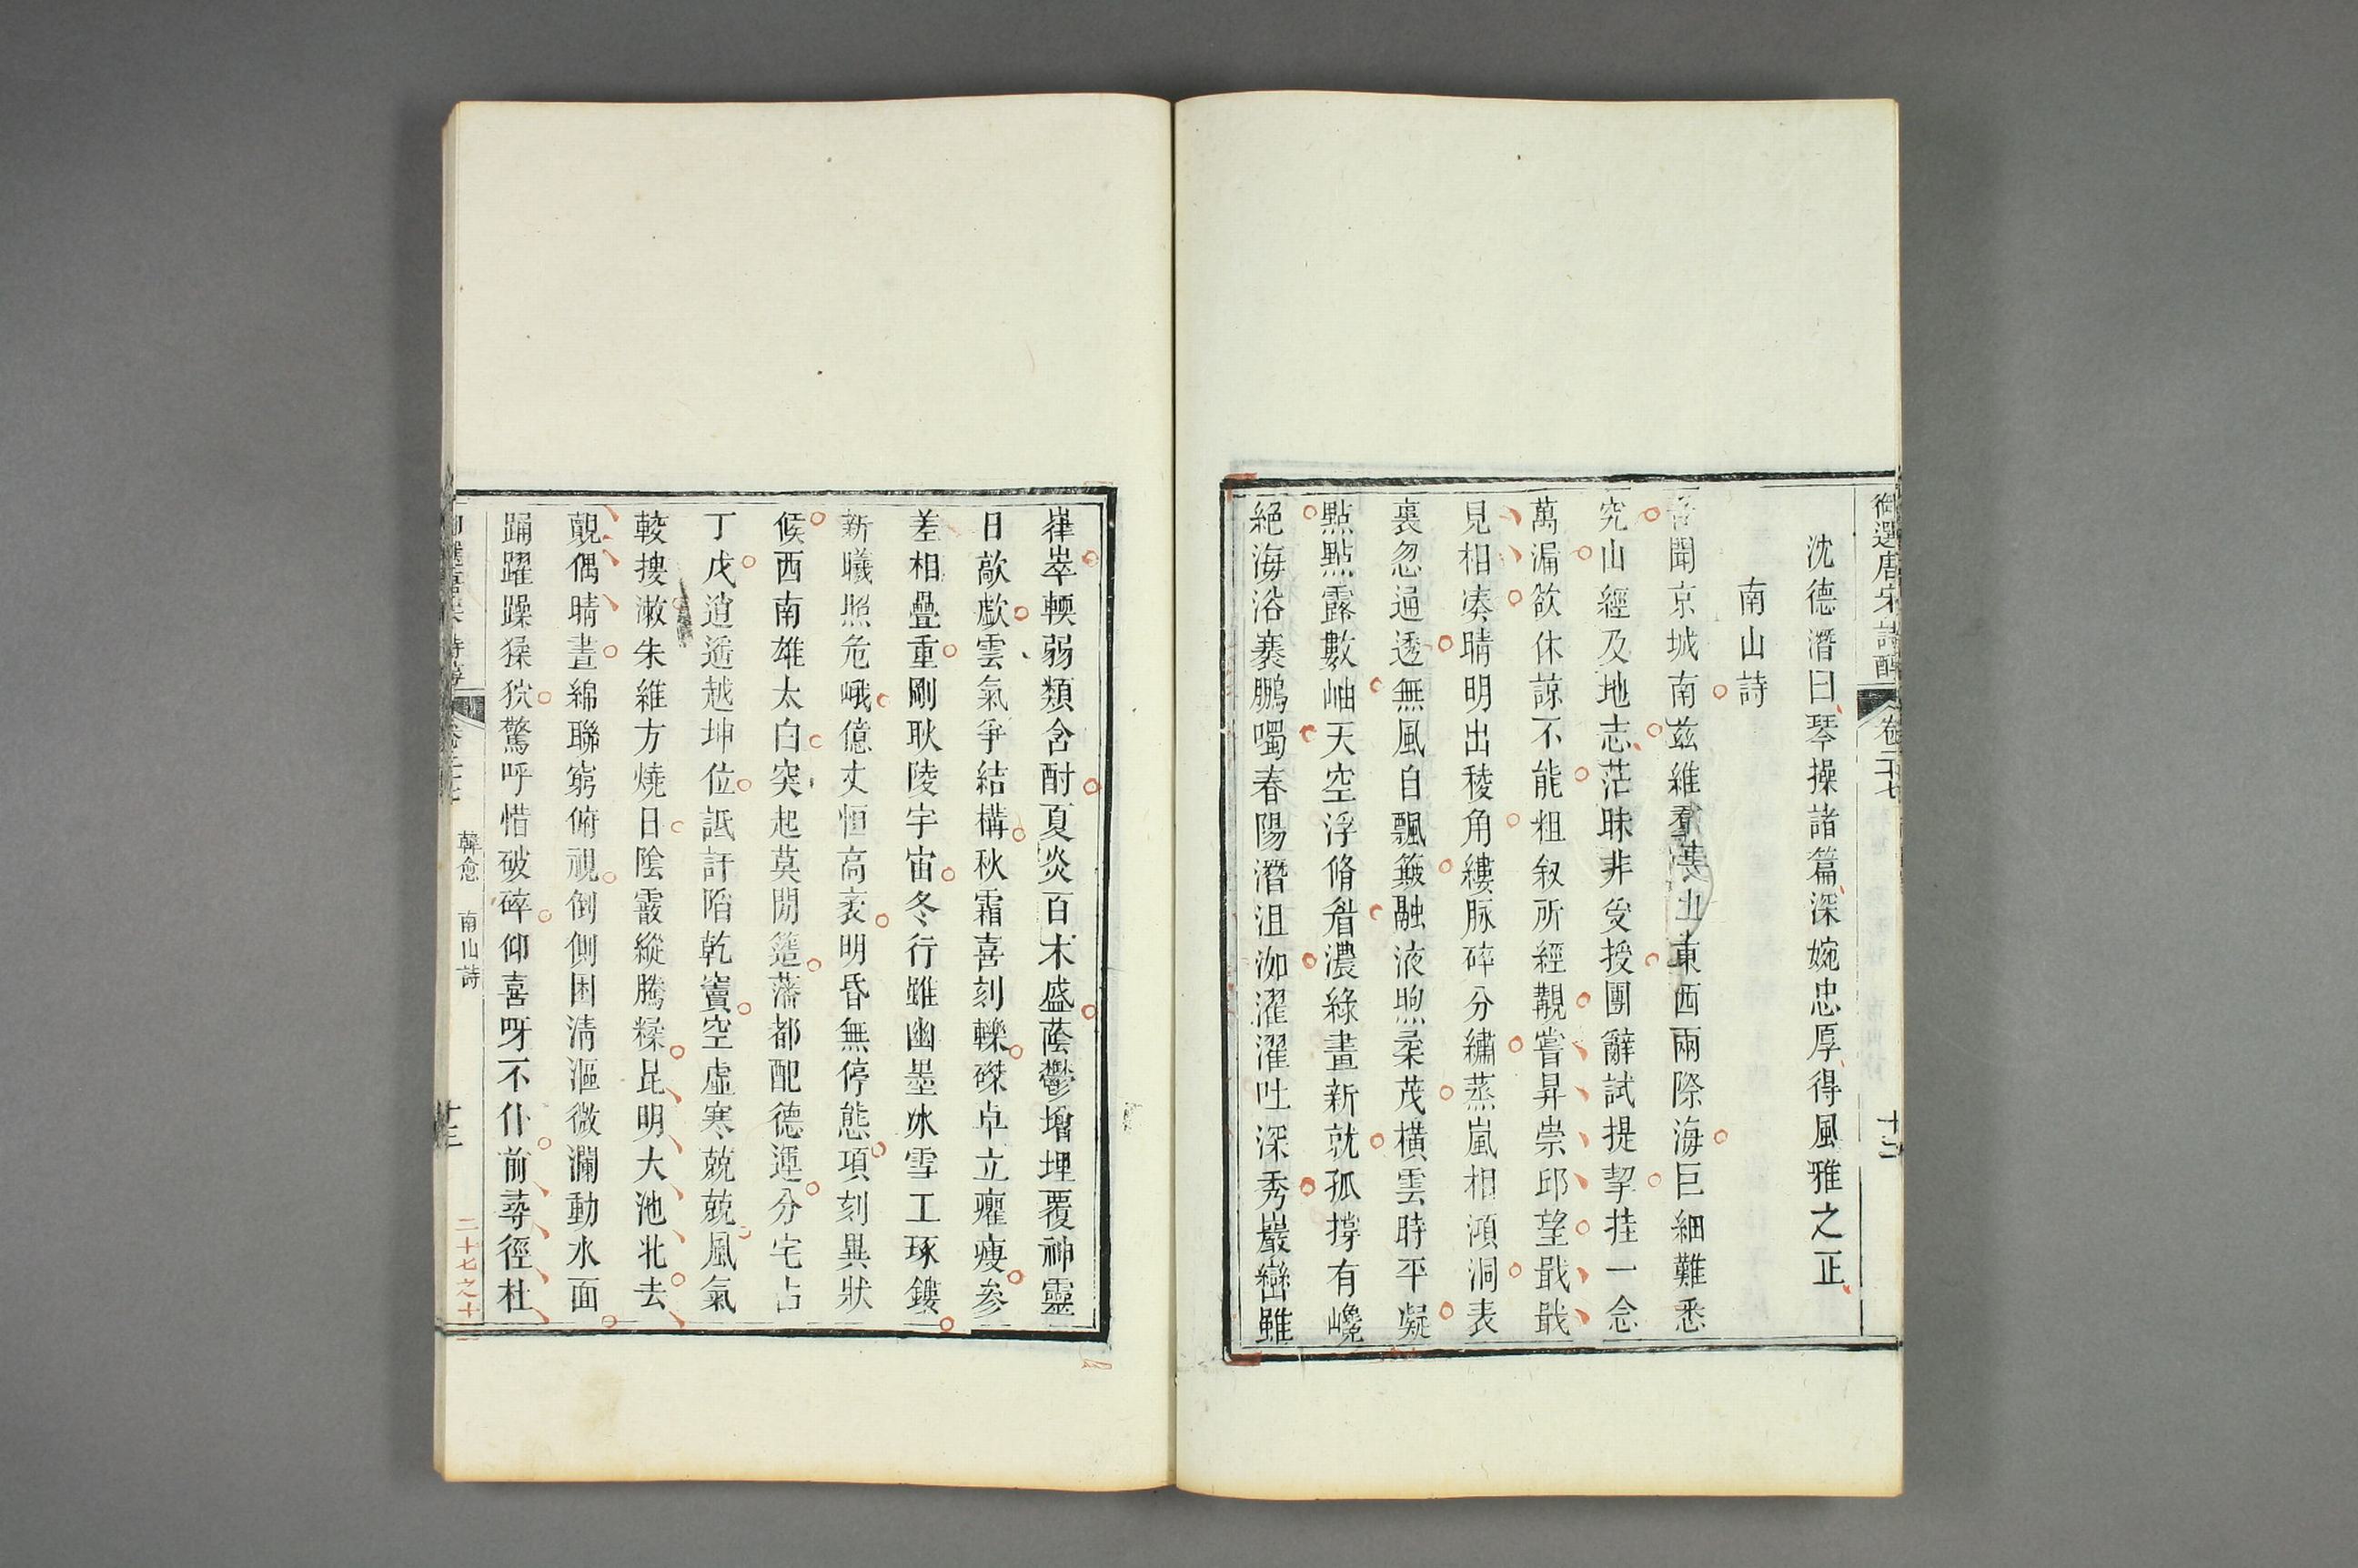 御選唐宋詩醇 卷二十七 十二
沈德潛曰琴操諸篇深婉忠厚得風雅之正
南山詩
吾聞京城南茲維羣山囿東西兩際海巨細難悉
究山經及地志茫昧非受授團辭試提挈挂一念
萬漏欲休諒不能粗叙所經覯嘗昇崇邱望戢戢
見相湊晴明出稜角縷脉碎分繡蒸嵐相澒洞表
裏忽通透無風自飄簸融液煦柔茂橫雲時平凝
點點露數岫天空浮脩眉濃綠畫新就孤撐有巉
絕海浴褰鵬噣春陽潛沮洳濯濯吐深秀巖巒雖
嵂崒輭弱類含酎夏炎百木盛蔭鬱增埋覆神靈
日歊歔雲氣爭結構秋霜喜刻轢磔卓立癯瘦参
差相疊重剛耿陵宇宙冬行雖幽墨冰雪工琢鏤
新曦照危峨億丈恒高袤明昏無停態頃刻異狀
候西南雄太白突起莫閒簉藩都配德運分宅占
丁戊逍遙越坤位詆訐陷乾竇空虛寒兢兢風氣
較搜漱朱維方燒日陰霰縱騰糅昆明大池北去
覿偶晴晝綿聯窮俯視倒側困清漚微瀾動水面
踊躍躁猱狖驚呼惜破碎仰喜呀不仆前尋徑杜
韓愈 南山詩
十三
二十七之十一